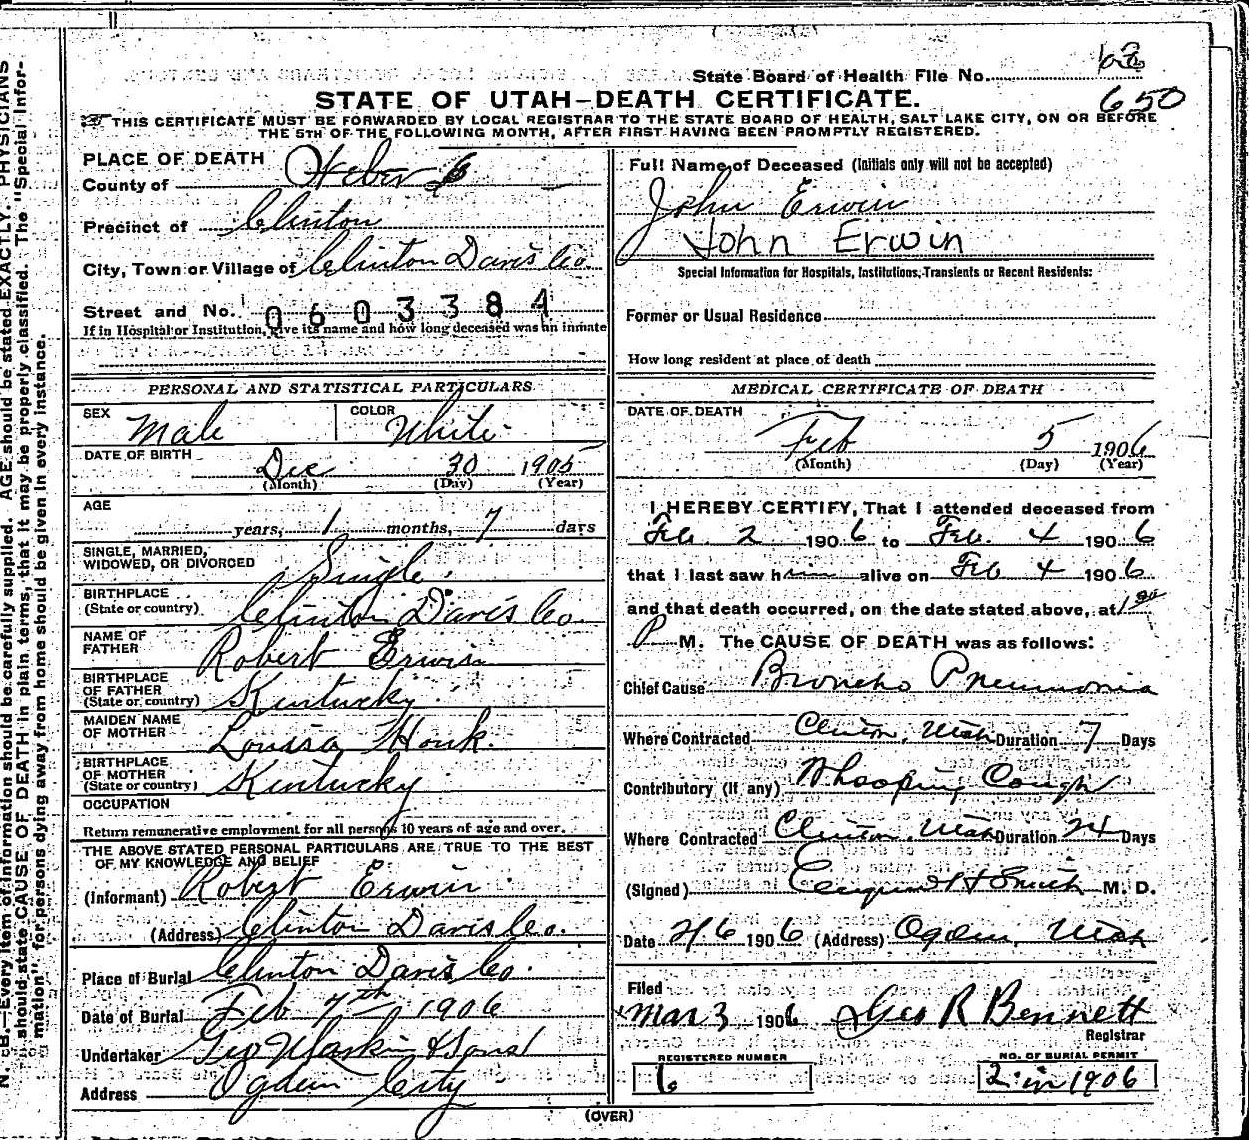 N. B.—Every item of information should be carefully supplied. AGE should be stated EXACTLY. PHYSICIANS
should state CAUSE OF DEATH in plain terms, that it may be properly classified. The "Special Infor-
mation" for persons dying away from home should be given in every instance.
State Board of Health File No. 63
650
STATE OF UTAH—DEATH CERTIFICATE.
THIS CERTIFICATE MUST BE FORWARDED BY LOCAL REGISTRAR TO THE STATE BOARD OF HEALTH, SALT LAKE CITY, ON OR BEFORE
THE 5TH OF THE FOLLOWING MONTH, AFTER FIRST HAVING BEEN PROMPTLY REGISTERED.
PLACE OF DEATH
County of Weber
Precinct of Clinton
City, Town or Village of Clinton Davis Co.
Street and No. 0603384
If in Hospital or Institution, give its name and how long deceased was an inmate
Full Name of Deceased (Initials only will not be accepted)
John Erwin
John Erwin
Special Information for Hospitals, Institutions, Transients or Recent Residents:
Former or Usual Residence
How long resident at place of death
PERSONAL AND STATISTICAL PARTICULARS
SEX Male COLOR White
DATE OF BIRTH Dec 30 1905
(Month) (Day) (Year)
AGE
years, 1 months, 7 days
SINGLE, MARRIED,
WIDOWED, OR DIVORCED Single.
BIRTHPLACE
(State or country) Clinton Davis Co.
NAME OF
FATHER Robert Erwin
BIRTHPLACE
OF FATHER
(State or country) Kentucky.
MAIDEN NAME
OF MOTHER Louisa Honk.
BIRTHPLACE
OF MOTHER
(State or country) Kentucky
OCCUPATION
Return remunerative employment for all persons 10 years of age and over.
THE ABOVE STATED PERSONAL PARTICULARS ARE TRUE TO THE BEST
OF MY KNOWLEDGE AND BELIEF
(Informant) Robert Erwin
(Address) Clinton Davis Co.
Place of Burial Clinton Davis Co.
Date of Burial Feb 7th 1906
Undertaker Geo & Sons
Address Ogden City
MEDICAL CERTIFICATE OF DEATH
DATE OF DEATH
Feb 5 1906
(Month) (Day) (Year)
I HEREBY CERTIFY, That I attended deceased from
Feb. 2 1906 to Feb. 4 1906
that I last saw him alive on Feb 4 1906
and that death occurred, on the date stated above, at 1
P M. The CAUSE OF DEATH was as follows:
Chief Cause Broncho Pneumonia
Where Contracted Clinton, Utah Duration 7 Days
Contributory (If any) Whooping Cough
Where Contracted Clinton, Utah Duration 24 Days
(Signed) H Smith M. D.
Date 2/6 1906 (Address) Ogden, Utah
Filed
Mar 3 1906 Geo R Bennett
Registrar
REGISTERED NUMBER
6
NO. OF BURIAL PERMIT
2 in 1906
(OVER)